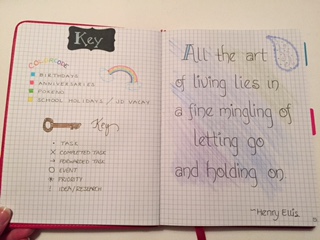 Key
COLORCODE
BIRTHDAYS
ANNIVERSARIES
SCHOOL HOLIDAYS / JD VACAY
Key
• TASK
× COMPLETED TASK
→ FORWARDED TASK
○ EVENT
* PRIORITY
! IDEA/RESEARCH
All the art
of living lies in
a fine mingling of
letting go
and holding on.
—Henry Ellis